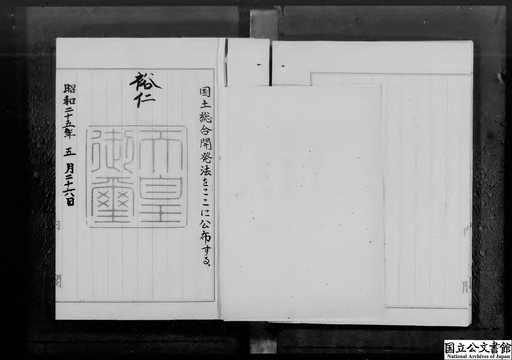 国土総合開発法をここに公布する。
裕仁
天皇
御璽
昭和二十五年五月二十六日
国立公文書館
National Archives of Japan